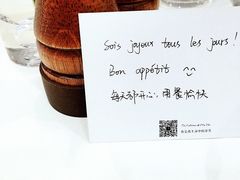 Sois joyeux tous les jours !
Bon appétit ^^
每天都开心，用餐愉快